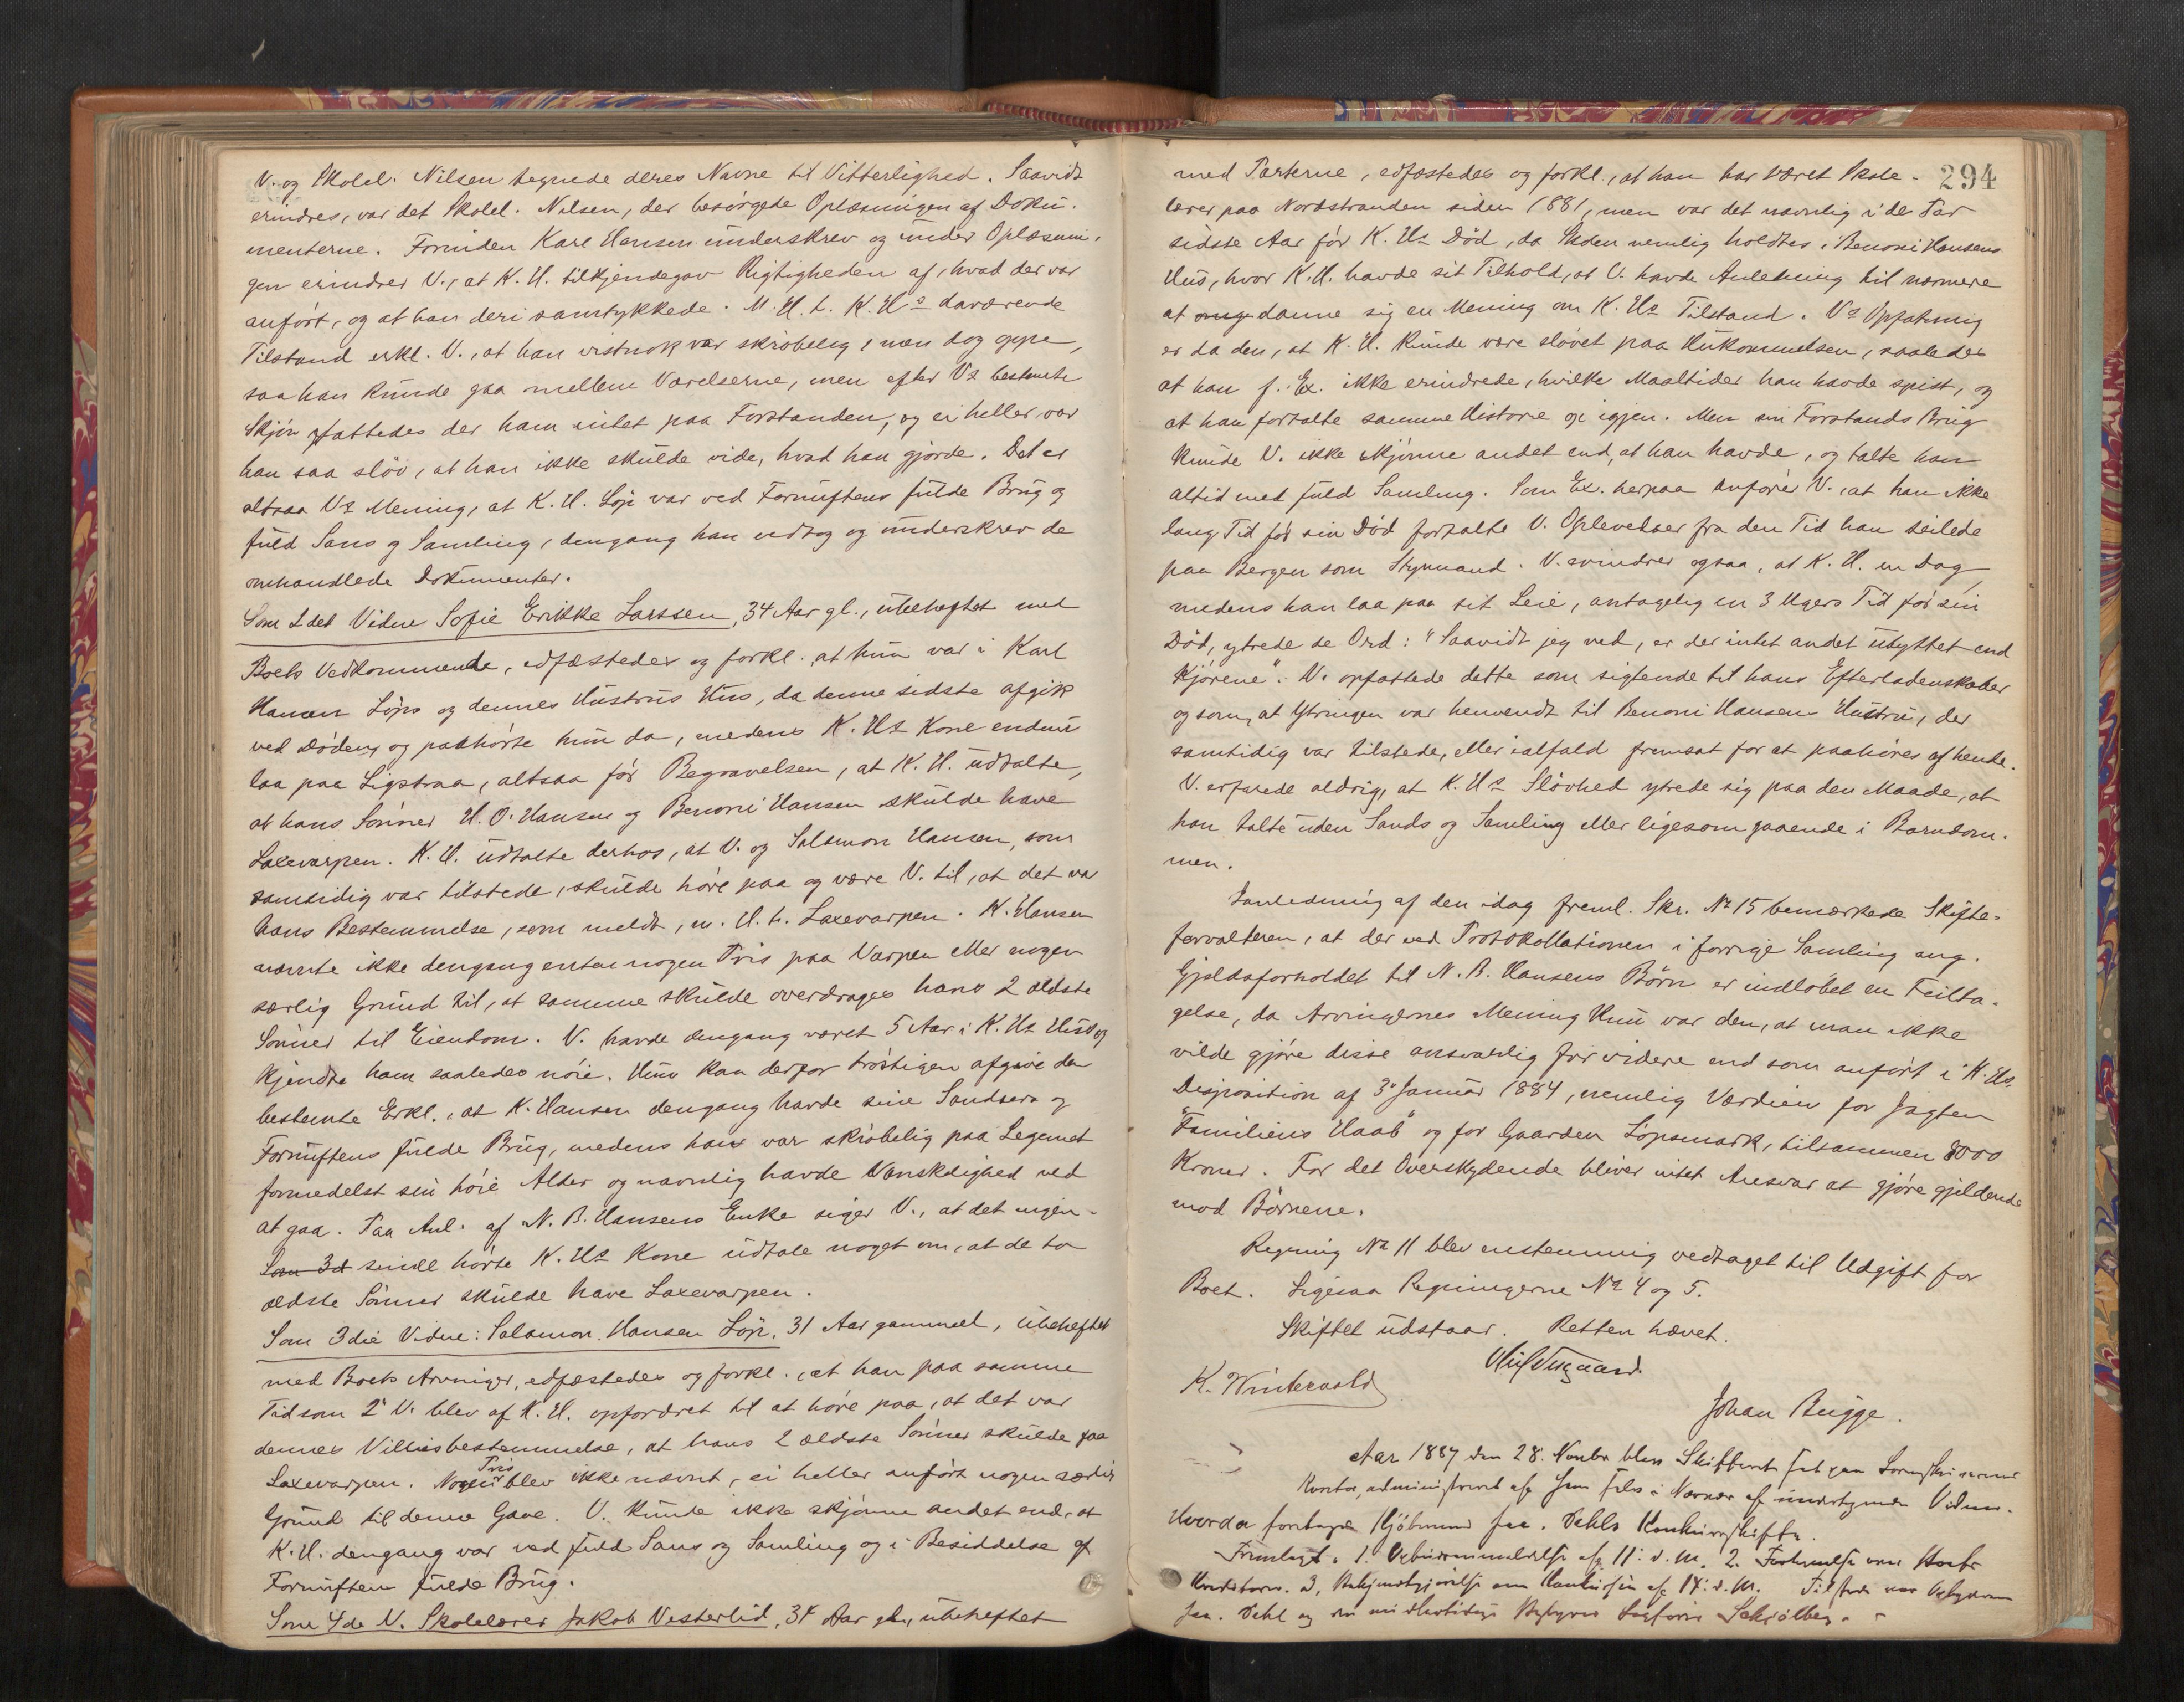 V. og Skolel. Nilsen tegnede deres Navne til Vitterlighed. Saavidt
erindres, var det Skolel. Nilsen, der besørgede Oplæsningen af Doku-
menterne. Forinden Karl Hansen underskrev og under Oplæsnin-
gen erindrer V., at K. H. tilkjendegav Rigtigheden af, hvad der var
anført, og at han deri samtykkede. M. H. t. K. Hs daværende
Tilstand erkl. V., at han vistnok var skrøbelig, men dog oppe,
saa han kunde gaa mellem Værelserne, men efter Vs bestemte
Skjøn fattedes der ham intet paa Forstanden, og ei heller var
han saa sløv, at han ikke skulde vide, hvad han gjorde. Det er
altsaa Vs Mening, at K. H. Løp var ved Fornuftens fulde Brug og
fuld Sans og Samling, dengang han vedtog og underskrev de
omhandlede Dokumenter.
Som 2det Vidne Sofie Erikke Larssen, 34 Aar gl., ubeheftet med
Boets Vedkommende, edfæstedes og forkl. at hun var i Karl
Hansen Løps og dennes Hustrus Hus, da denne sidste afgik
ved Døden, og paahørte hun da, medens K. Hs Kone endnu
laa paa Ligstraa, altsaa før Begravelsen, at K. H. udtalte,
at hans Sønner H. O. Hansen og Benoni Hansen skulde have
Laxevarpen. K. H. udtalte derhos, at V. og Salamon Hansen, som
samtidig var tilstede, skulde høre paa og være V. til, at det var
hans Bestemmelse, som meldt, m. H. t. Laxevarpen. K. Hansen
nævnte ikke dengang enten nogen Pris paa Varpen eller nogen
særlig Grund til, at samme skulde overdrages hans 2 ældste
Sønner til Eiendom. V. havde dengang været 5 Aar i K. Hs Hus og
kjendte ham saaledes nøie. Hun kan derfor trøstigen afgive den
bestemte Erkl., at K. Hansen dengang havde sine Sandsers og
Fornuftens fulde Brug, medens han var skrøbelig paa Legemet
formedelst sin høie Alder og navnlig havde Vanskelighed ved
at gaa. Paa Anl. af N. B. Hansens Enke siger V., at det ingen-
Som 3d sinde hørte K. Hs Kone udtale noget om, at de to
ældste Sønner skulde have Laxevarpen.
Som 3die Vidne: Salamon Hansen Løp, 31 Aar gammel, ubeheftet
med Boets Arvinger, edfæstedes og forkl., at han paa samme
Tid som 2' V. blev af K. H. opfordret til at høre paa, at det var
dennes Villiesbestemmelse, at hans 2 ældste Sønner skulde faa
Laxevarpen. Nogen Pris blev ikke nævnt, ei heller anført nogen særlig
Grund til denne Gave. V. kunde ikke skjønne andet end, at
K. H. dengang var ved fuld Sans og Samling og i Besiddelse af
Fornuftens fulde Brug.
Som 4de V. Skolelærer Jakob Vesterlid, 34 Aar gl., ubeheftet
294
med Parterne, edfæstedes og forkl., at han har været Skole-
lærer paa Nordstranden siden 1881, men var det navnlig i de Par
sidste Aar før K. Hs Død, da Skolen nemlig holdtes i Benoni Hansens
Hus, hvor K. H. havde sit Tilhold, at V. havde Anledning til nærmere
at omg danne sig en Mening om K. Hs Tilstand. Vs Opfatning
er da den, at K. H. kunde være sløvet paa Hukommelsen, saaledes
at han f. Ex. ikke erindrede, hvilke Maaltider han havde spist, og
at han fortalte samme Historie op igjen. Men sin Forstands Brug
kunde V. ikke skjønne andet end, at han havde, og talte han
altid med fuld Samling. Som Ex. herpaa anfører V., at han ikke
lang Tid før sin Død fortalte V. Oplevelser fra den Tid han seilede
paa Bergen som Styrmand. V. erindrer ogsaa, at K. H. en Dag,
medens han laa paa sit Leie, antagelig en 3 Ugers Tid før sin
Død, ytrede de Ord: "Saavidt jeg ved, er der intet andet ubyttet end
Kjørene". V. opfattede dette som sigtende til hans Efterladenskaber
og som, at Ytringen var henvendt til Benoni Hansens Hustru, der
samtidig var tilstede, eller ialfald fremsat for at paahøres af hende.
V. erfarede aldrig, at K. Hs Sløvhed ytrede sig paa den Maade, at
han talte uden Sands og Samling eller ligesom gaaende i Barndom-
men.
I anledning af den idag freml. Skr. No 15 bemærkede Skifte-
forvalteren, at der ved Protokollationen i forrige Samling ang.
Gjældsforholdet til N. B. Hansens Børn er indløbet en Feilta-
gelse, da Arvingernes Mening kun var den, at man ikke
vilde gjøre disse ansvarlig for videre end som anført i K. Hs
Disposition af 3' Januar 1884, nemlig Værdien for Jagten
"Familiens Haab" og for Gaarden Løpsmark, tilsammen 8000
Kroner. For det Overskydende bliver intet Ansvar at gjøre gjeldende
mod Børnene.
Regning No 11 blev enstemmig vedtaget til Udgift for
Boet. Ligesaa Regningerne No 4 og 5.
Skiftet udstaar. Retten hævet.
K. Wintervold
Johan Bugge.
Aar 1887 den 28. Novbr blev Skifteret sat paa Sorenskriverens
Kontor, administreret af i Nærvær af undertegnede Vidner.
Hvorda foretoges Kjøbmand Dahls Konkursskifte.
Fremlagt: 1. af 11. d. M. 2. over Boets
Kreditorer. 3, Bekjendtgjørelse om Konkursen af 14. d. M. Tilstede var
Dahl og den midlertidige Bestyrer Sagfører Schjølberg.